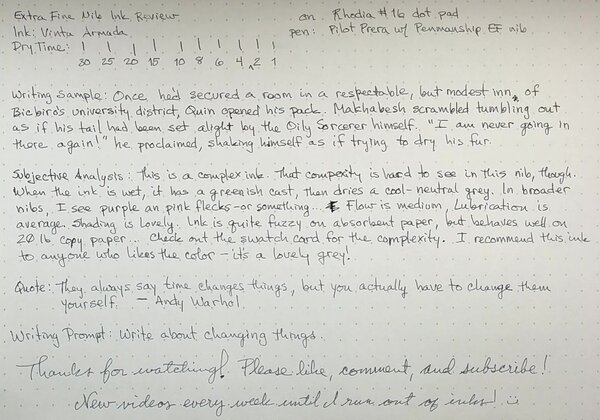 Extra Fine Nib Ink Review on: Rhodia #16 dot pad
Ink: Vinta Armada pen: Pilot Prera w/ Penmanship EF nib
Dry Time: | | | | | | | | | |
30 25 20 15 10 8 6 4 2 1
Writing Sample: Once he'd secured a room in a respectable, but modest inn, of
Bicbiro's university district, Quin opened his pack. Makhabesh scrambled tumbling out
as if his tail had been set alight by the Oily Sorcerer himself. "I am never going in
there again!" he proclaimed, shaking himself as if trying to dry his fur.
Subjective Analysis: This is a complex ink. That compexity is hard to see in this nib, though.
When the ink is wet, it has a greenish cast, then dries a cool-neutral grey. In broader
nibs, I see purple an pink flecks-or something... Flow is medium, Lubrication is
average. Shading is lovely. Ink is quite fuzzy on absorbent paper, but behaves well on
20 lb copy paper... Check out the swatch card for the complexity. I recommend this ink
to anyone who likes the color - it's a lovely grey!
Quote: They always say time changes things, but you actually have to change them
yourself. - Andy Warhol
Writing Prompt: Write about changing things.
Thanks for watching! Please like, comment, and subscribe!
New videos every week until I run out of inks! :)